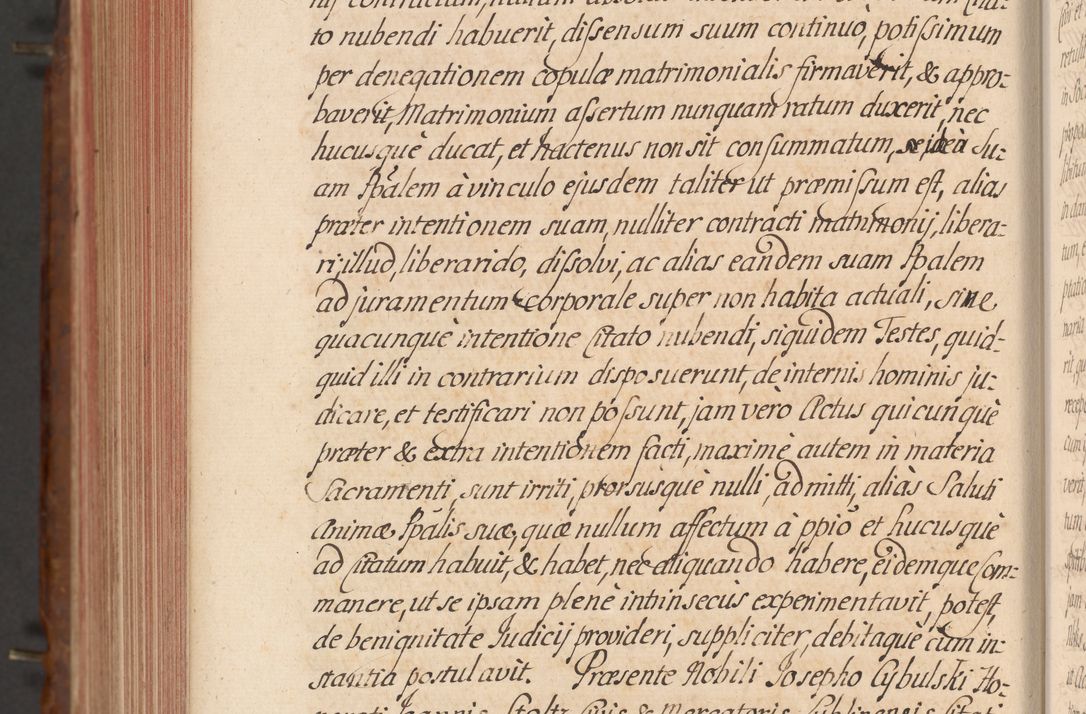 to nubendi habuerit, dissensum suum continuo, potissimum
per denegationem copulæ matrimonialis firmaverit, & appro:
baverit, Matrimonium assertum nunquam ratum duxerit, nec
hucusquè ducat, et hactenus non sit consummatum, se ideò Su:
am Ppalem à vinculo ejusdem taliter ut præmissum est, alias
præter intentionem suam, nulliter contracti matrimonij, libera:
ri, illud, liberarido, dissolvi, ac alias eandem suam Ppalem
ad juramentum corporale super non habita actuali, sine
quacunquè intentione Citato nubendi, siquidem Testes, quid-
quid illi in contrarium disposuerunt, de internis hominis ju:
dicare, et testificari non possunt, jam vero Actus quicunquè
præter & extra intentionem facti, maximè autem in materia
Sacramenti, sunt irriti, prorsusquè nulli, admitti, aliàs Saluti
Animæ Ppalis suæ, quæ nullum affectum à ppiō et hucusquè
ad Citatum habuit, & habet, nec aliquando habere, eidemque Com:
manere, ut se ipsam plenè intrinsecùs experimentavit, potest,
de benignitate Iudicij provideri, suppliciter, debitaquè cum in:
stantia postulavit. Præsente Nobili Iosepho Cybulski Ho: